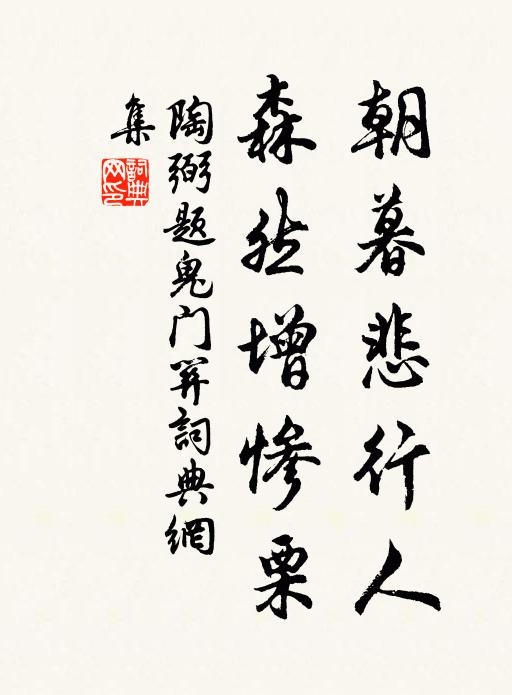 朝暮悲行人
森然增慘栗
陶弼题鬼门关詞典網
集
詞典
网印